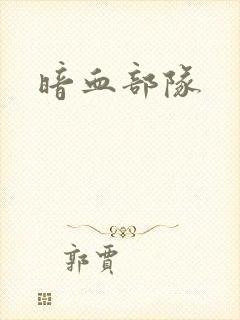 暗血部隊
郭賈